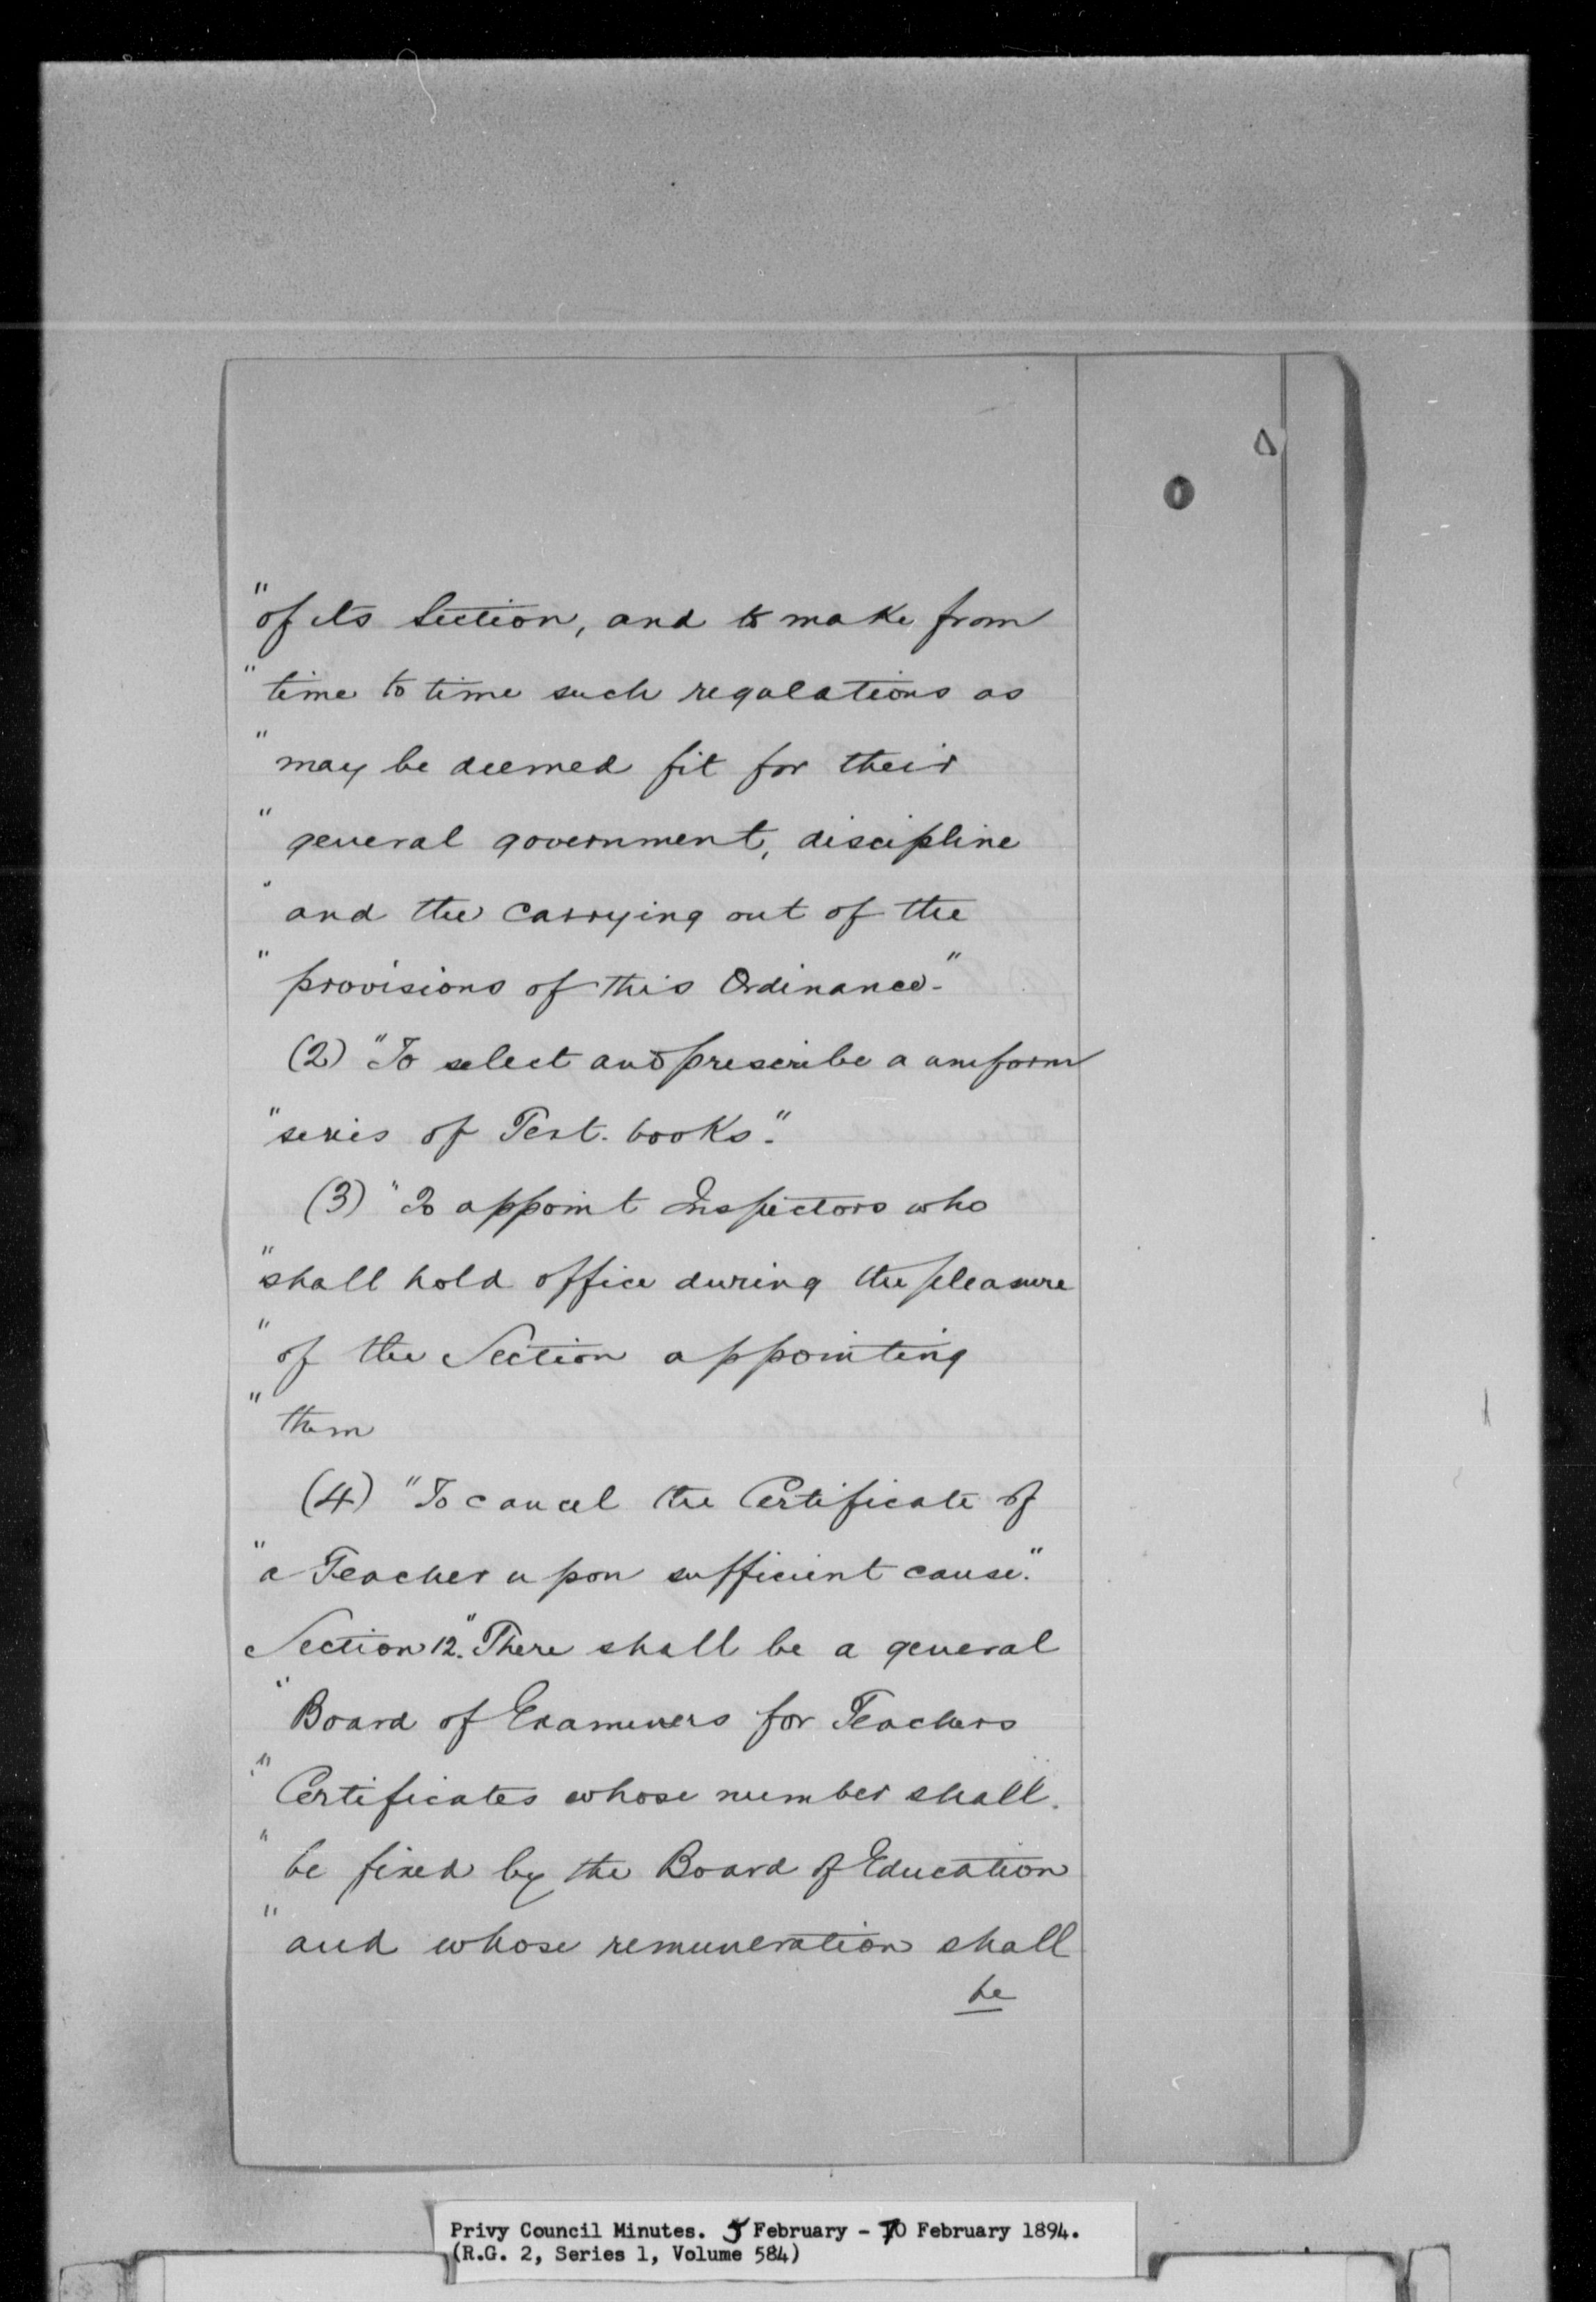 "of its Section, and to make from
"time to time such regulations as
"may be deemed fit for their
"general government, discipline
"and the carrying out of the
"provisions of this Ordinance."
(2) "To select and prescribe a uniform
"series of Text-books."
(3) "To appoint Inspectors who
"shall hold office during the pleasure
"of the Section appointing
"them
(4) "To cancel the Certificate of
"a Teacher upon sufficient cause."
Section 12. "There shall be a general
"Board of Examiners for Teachers
"Certificates whose number shall
"be fixed by the Board of Education
"and whose remuneration shall
be
Privy Council Minutes. 5 February - 10 February 1894.
(R.G. 2, Series 1, Volume 584)